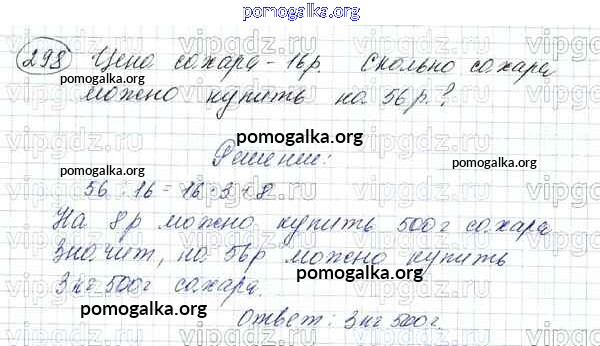 pomogalka.org
298 Цена сахара - 16р. Сколько сахара
pomogalka.org
можно купить на 56р.?
pomogalka.org
Решение:
pomogalka.org
56 : 16 = 16 · 3 + 8
На 8р можно купить 500г сахара
Значит, на 56р можно купить
pomogalka.org
3кг 500г сахара.
pomogalka.org
Ответ: 3кг 500г.
pomogalka.org